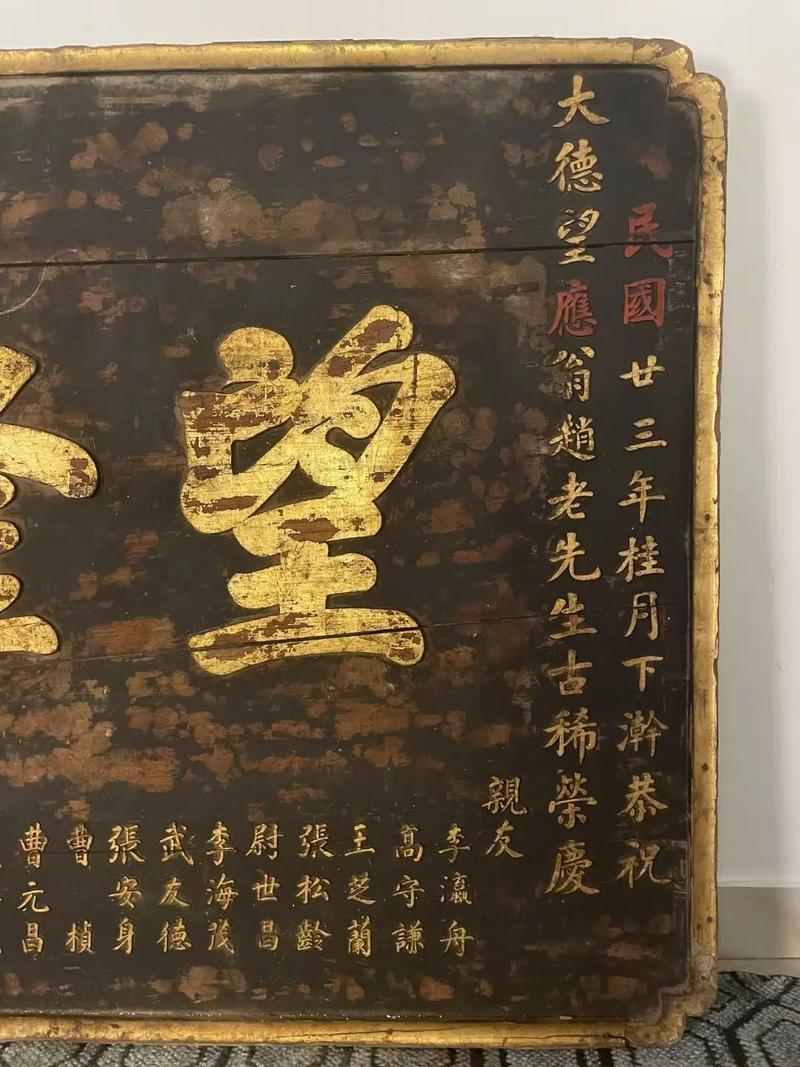 民國廿三年桂月下澣恭祝
大德望應翁趙老先生古稀榮慶
望
親友
李瀛舟
高守謙
王芝蘭
張松齡
尉世昌
李海茂
武友德
張安身
曹楨
曹元昌